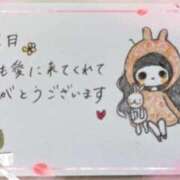 月
も後に来てくれて
がとうございます